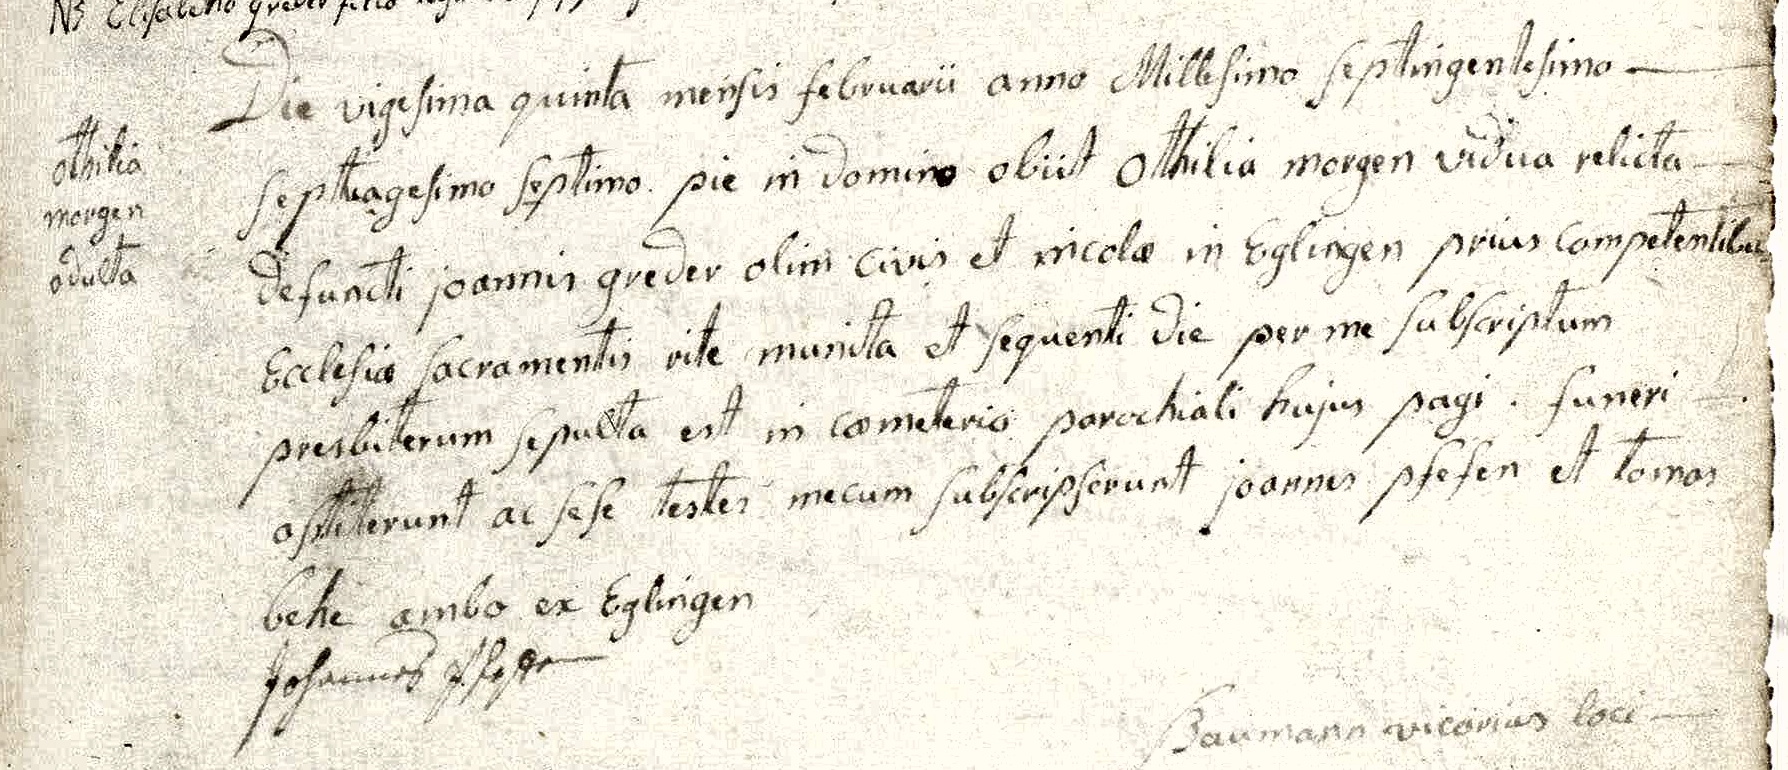 NB Elisabetha greder
Die vigesima quinta mensis februarii anno Millesimo septingentesimo
othilia
morgen
adulta
septuagesimo septimo. pie in domino obiit Othilia morgen vidua relicta
defuncti joannis greder olim civis et incolæ in Eglingen prius competentibus
Ecclesiæ sacramentis rite munita et sequenti die per me subscriptum
presbiterum sepulta est in cœmeterio parochiali hujus pagi. funeri
astiterunt ac sese testes mecum subscripserunt joannes pfefen et tomas
behe ambo ex Eglingen
Johannes
Baumann vicarius loci